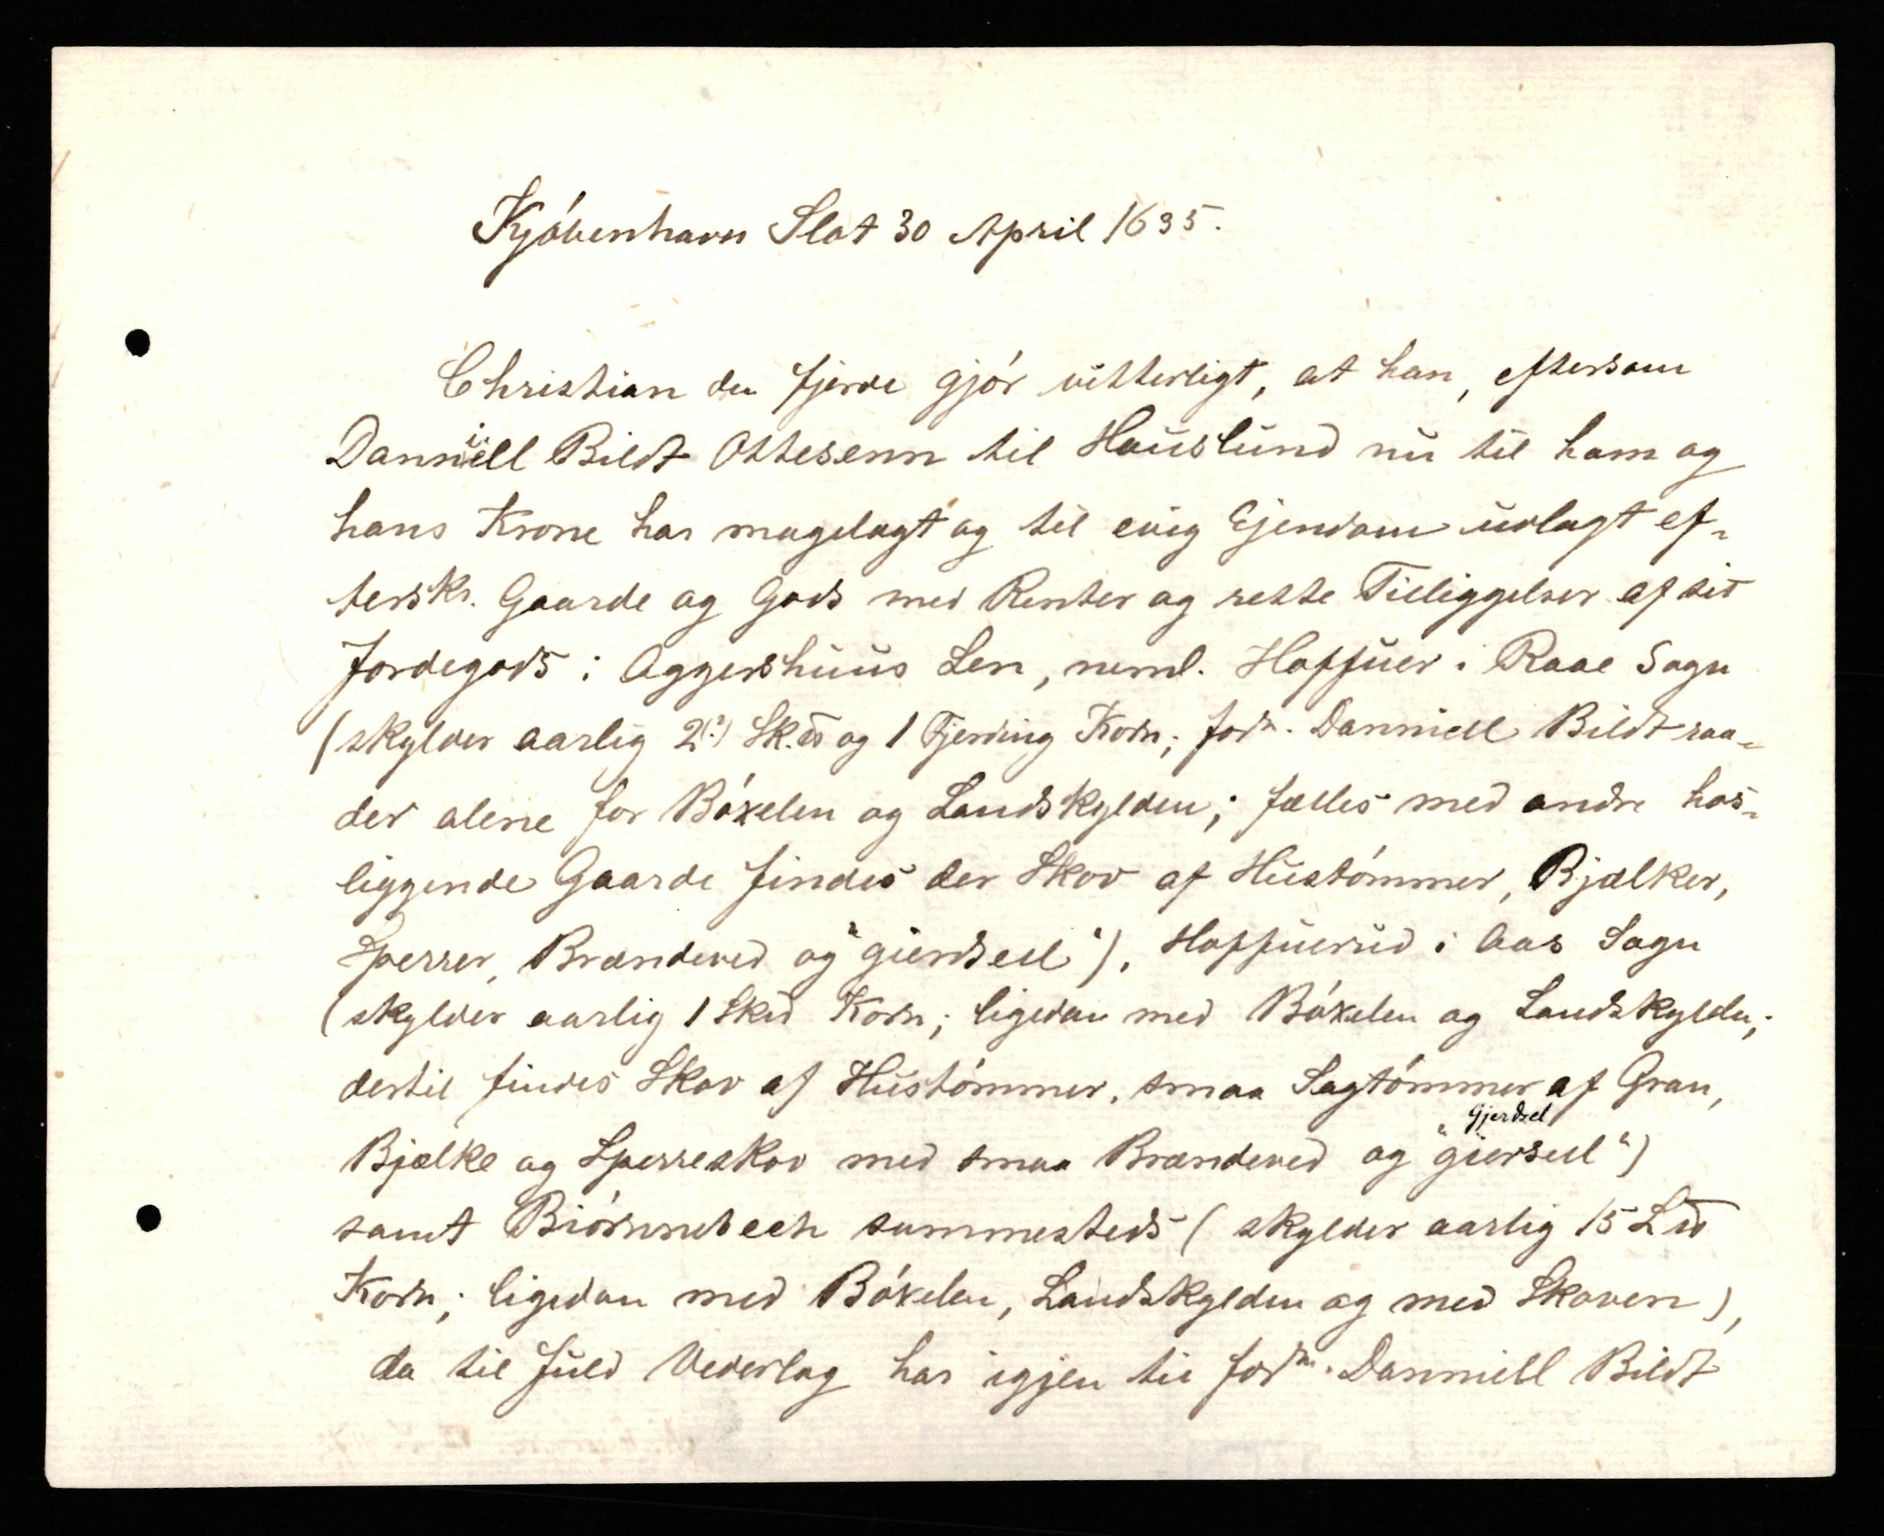 Kjóbenhavn Slot 30 April 1635.
Christian den fjerde gjór vitterligt, at han, eftersom
Danniell Bildt Ottesenn til Hauslund nu til ham og
hans Krone har magelagt og til evig Ejendom udlagt ef-
terskr. Gaarde og Gods med Renter og rette Tilliggelser af sit
Jordegods i Aggershuus Len, neml. Hoffuer i Raae Sogn
(skylder aarlig 2(?) Sk.℔ og 1 Fjerding Korn; fordn. Danniell Bildt raa-
der alene for Bóxelen og Landskylden; fælles med andre hos-
liggende Gaarde findes der Skov af Hustómmer, Bjælker,
Sperrer, Brændeved og "gierdseel"), Hoffuerud i Aas Sogn
(skylder aarlig 1 Sk℔ Korn; ligedan med Bóxelen og Landskylden;
dertil findes Skov af Hustómmer, smaa Sagtómmer af Gran,
Gjerdsel
Bjælke og Sperreskov med smaa Brændeved og "gierseel")
samt Biórnnebech sammesteds (skylder aarlig 15 L℔
Korn; ligedan med Bóxelen, Landskylden og med Skoven),
da til fuld Vederlag har igjen til fordn. Danniell Bildt